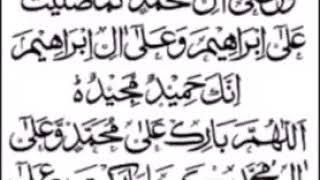 وعلى ال محمد كما صليت
على ابراهيم وعلى ال ابراهيم
انك حميد مجيد
اللهم بارك على محمد وعلى
ال محمد